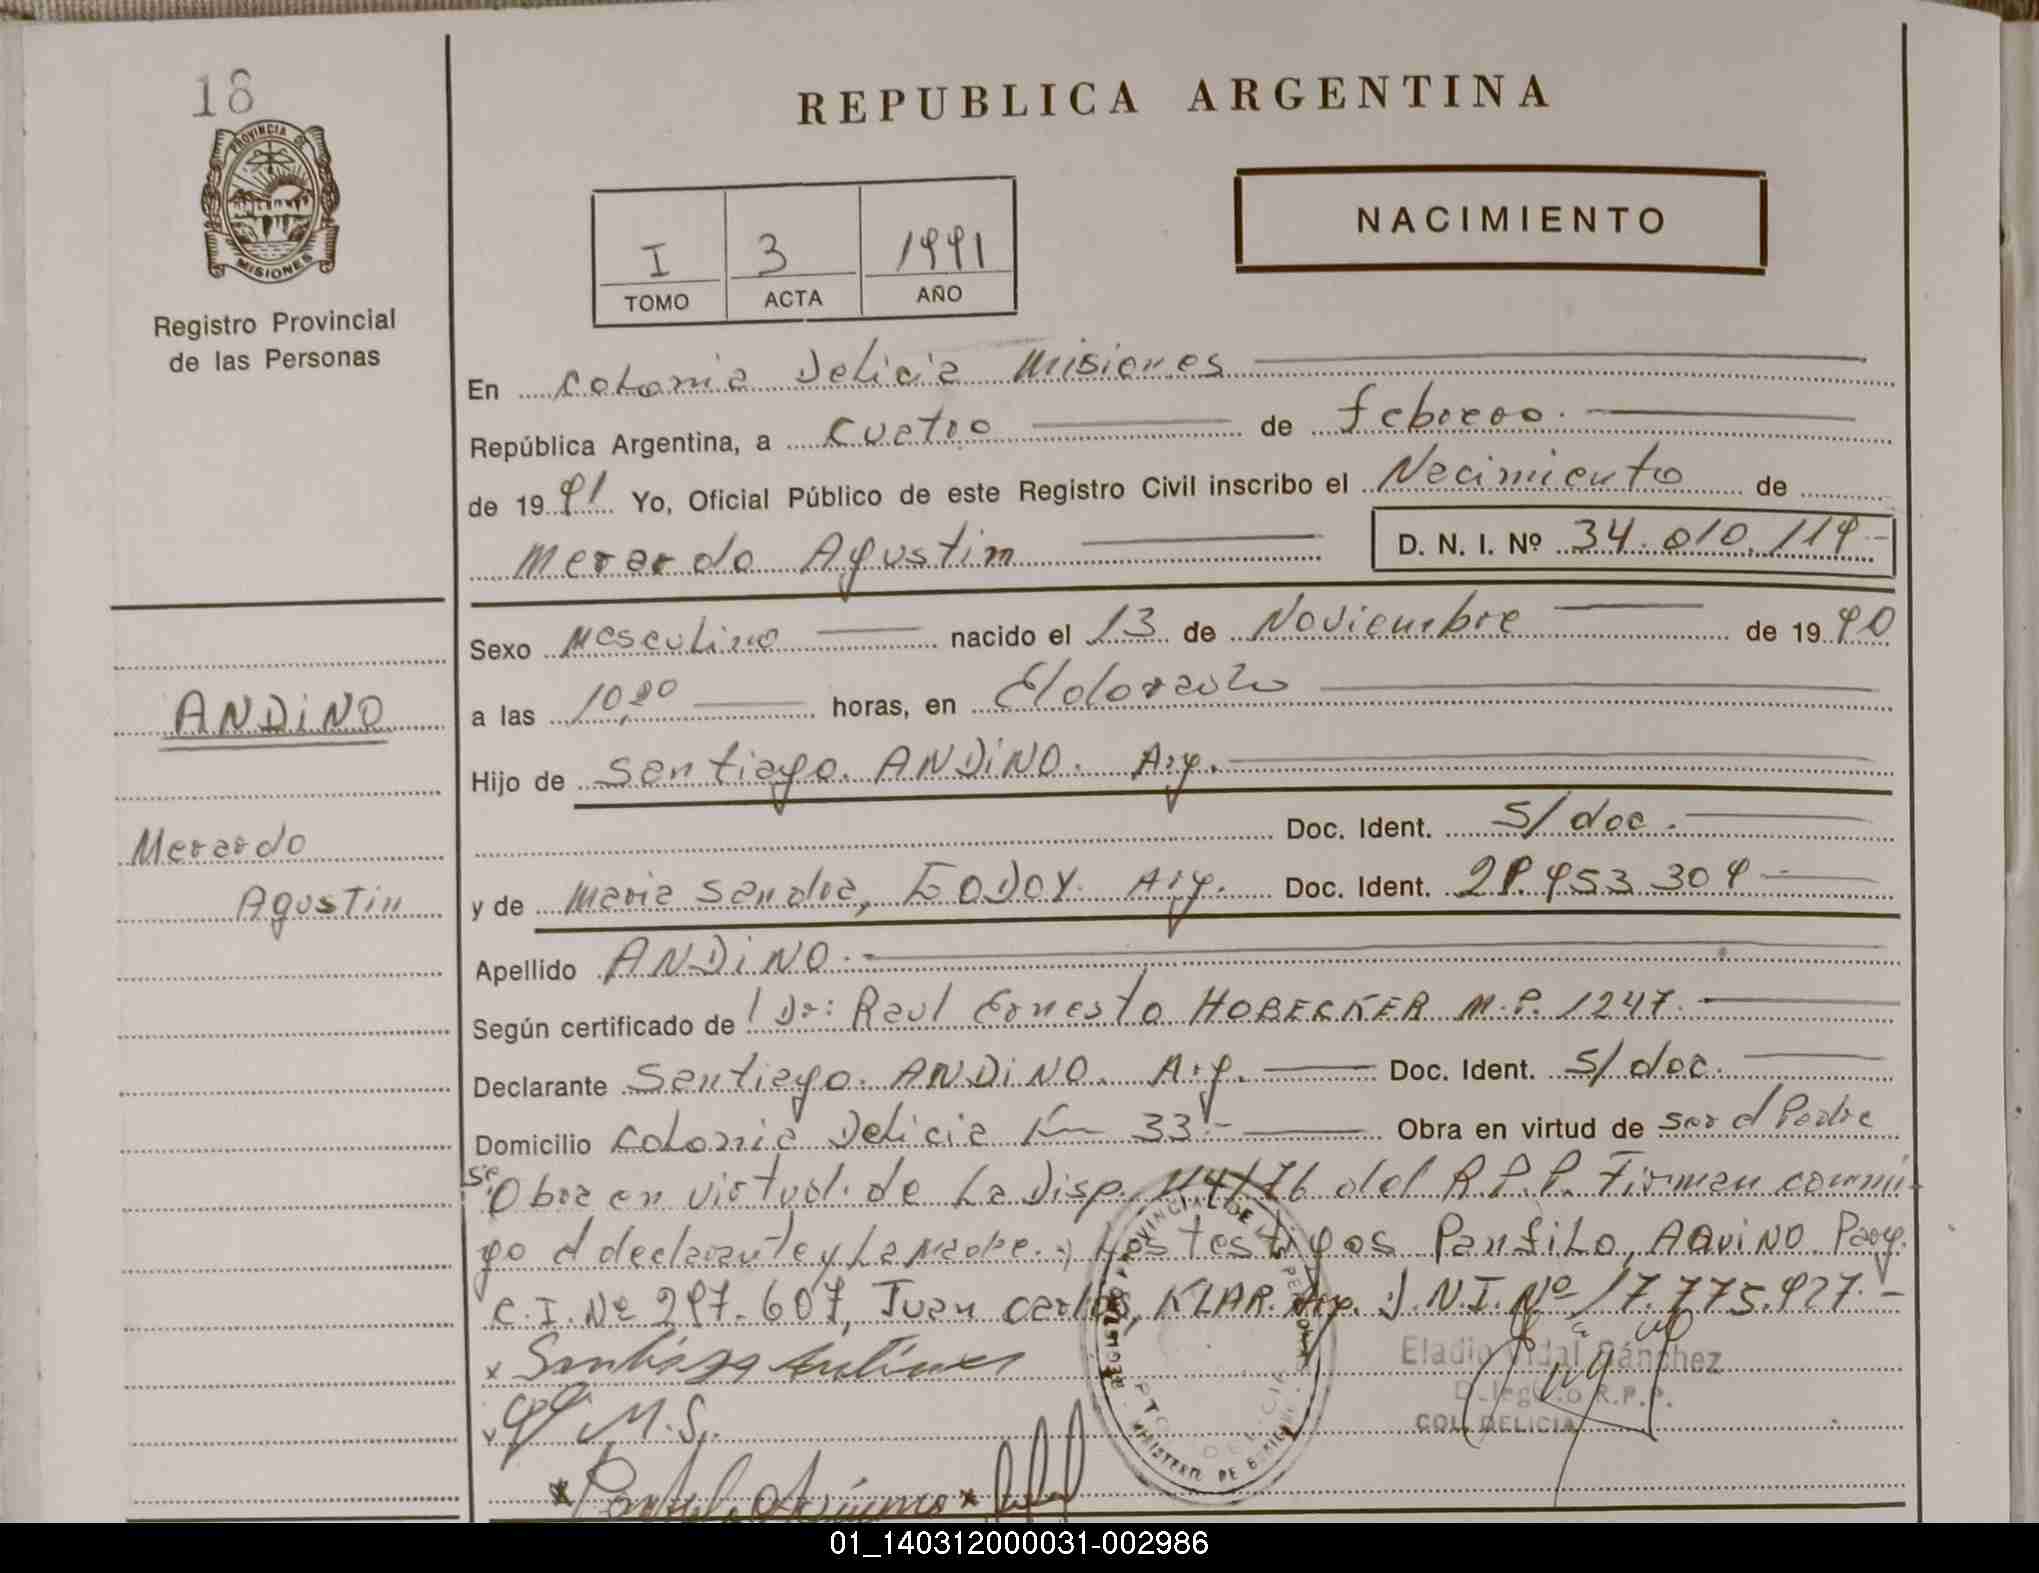 18
PROVINCIA DE
MISIONES
Registro Provincial
de las Personas
REPUBLICA ARGENTINA
NACIMIENTO
I 3 1991
TOMO ACTA AÑO
En Colonia Delicia Misiones
República Argentina, a Cuatro de febrero.
de 19 91 Yo, Oficial Público de este Registro Civil inscribo el Nacimiento de
Merardo Agustin D. N. I. Nº 34.010.119-
Sexo Masculino nacido el 13 de Noviembre de 19 90
a las horas, en Eldorado
Hijo de Santiago. ANDiNO. Arg.
Doc. Ident. S/doc.
y de Maria Sandra, GODOY. Arg. Doc. Ident. 29.953.309
Apellido ANDiNO.
Según certificado de Dr: Raul Ernesto HOBECKER M.P. 1247.
Declarante Santiago. ANDiNO. Arg. Doc. Ident. S/doc.
Domicilio Colonia Delicia Km 33.- Obra en virtud de ser el Padre
Se Obra en virtud. de La Disp. 114/76 del R.P.P. Firman conmi-
go el declarante y La Madre. y Los testigos Panfilo, AQUiNO Parg.
C.I. Nº 297.607, Juan Carlos, KLAR. Arg. D.N.I. Nº 17.775.927.-
ANDiNO
Merardo
Agustin
M.S.
Eladio Vidal Sánchez
Delegado R.P.P.
COL. DELICIA
REGISTRO PROVINCIAL DE LAS PERSONAS
01_140312000031-002986